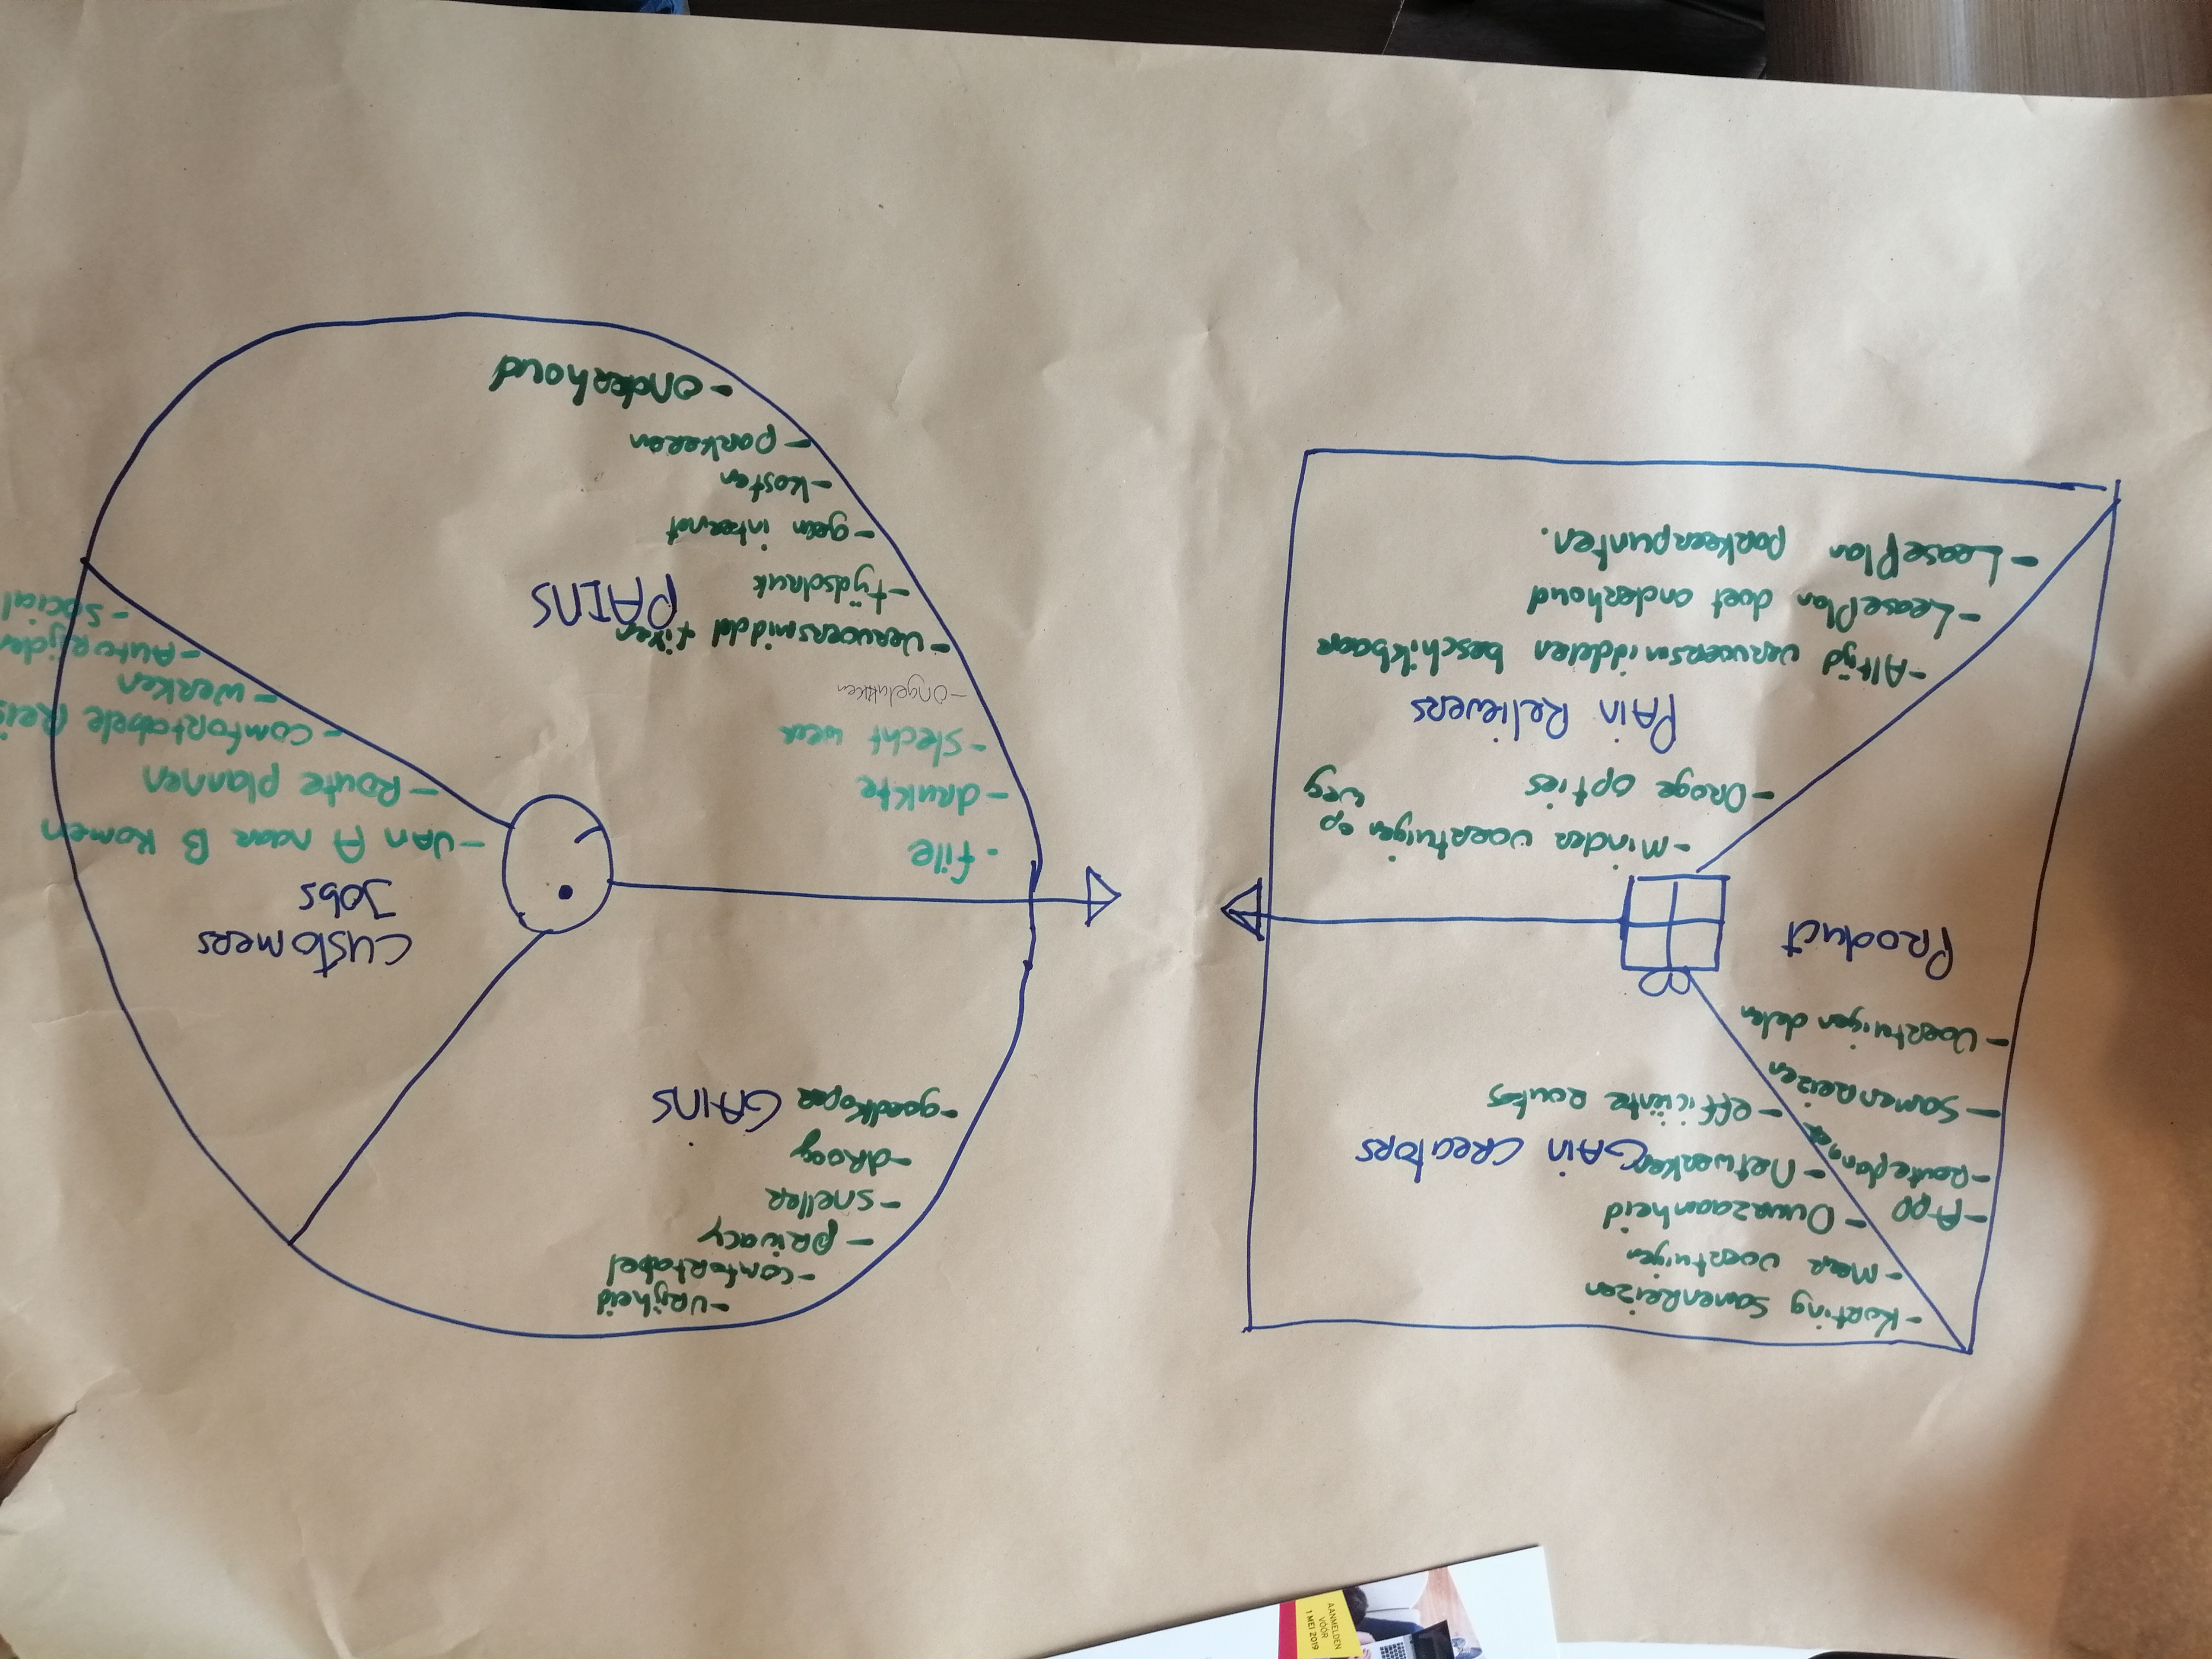 AANMELDEN
VÓÓR
1 MEI 2019
- Korting samenReizen
- Meer voertuigen
- Duurzaamheid
- netwerken
- efficiënte routes
GAIN CREATORS
- App
- Routeplanner
- samenReizen
- Voertuigen delen
PRODUCT
- Minder voertuigen op
weg
- Droge opties
PAIN RELIEVERS
- Altijd vervoersmiddelen beschikbaar
- LeasePlan doet onderhoud
- LeasePlan parkeerpunten.
- vrijheid
- comfortabel
- privacy
- sneller
- droog
- goedkoper
GAINS
CUSTOMERS
JOBS
- VAN A naar B komen
- Route plannen
- comfortabele Reis
- werken
- Autorijden
- social
- file
- drukte
- slecht weer
- ongelukken
- vervoersmiddel fixen
PAINS
- tijdsdruk
- geen internet
- kosten
- parkeren
- onderhoud